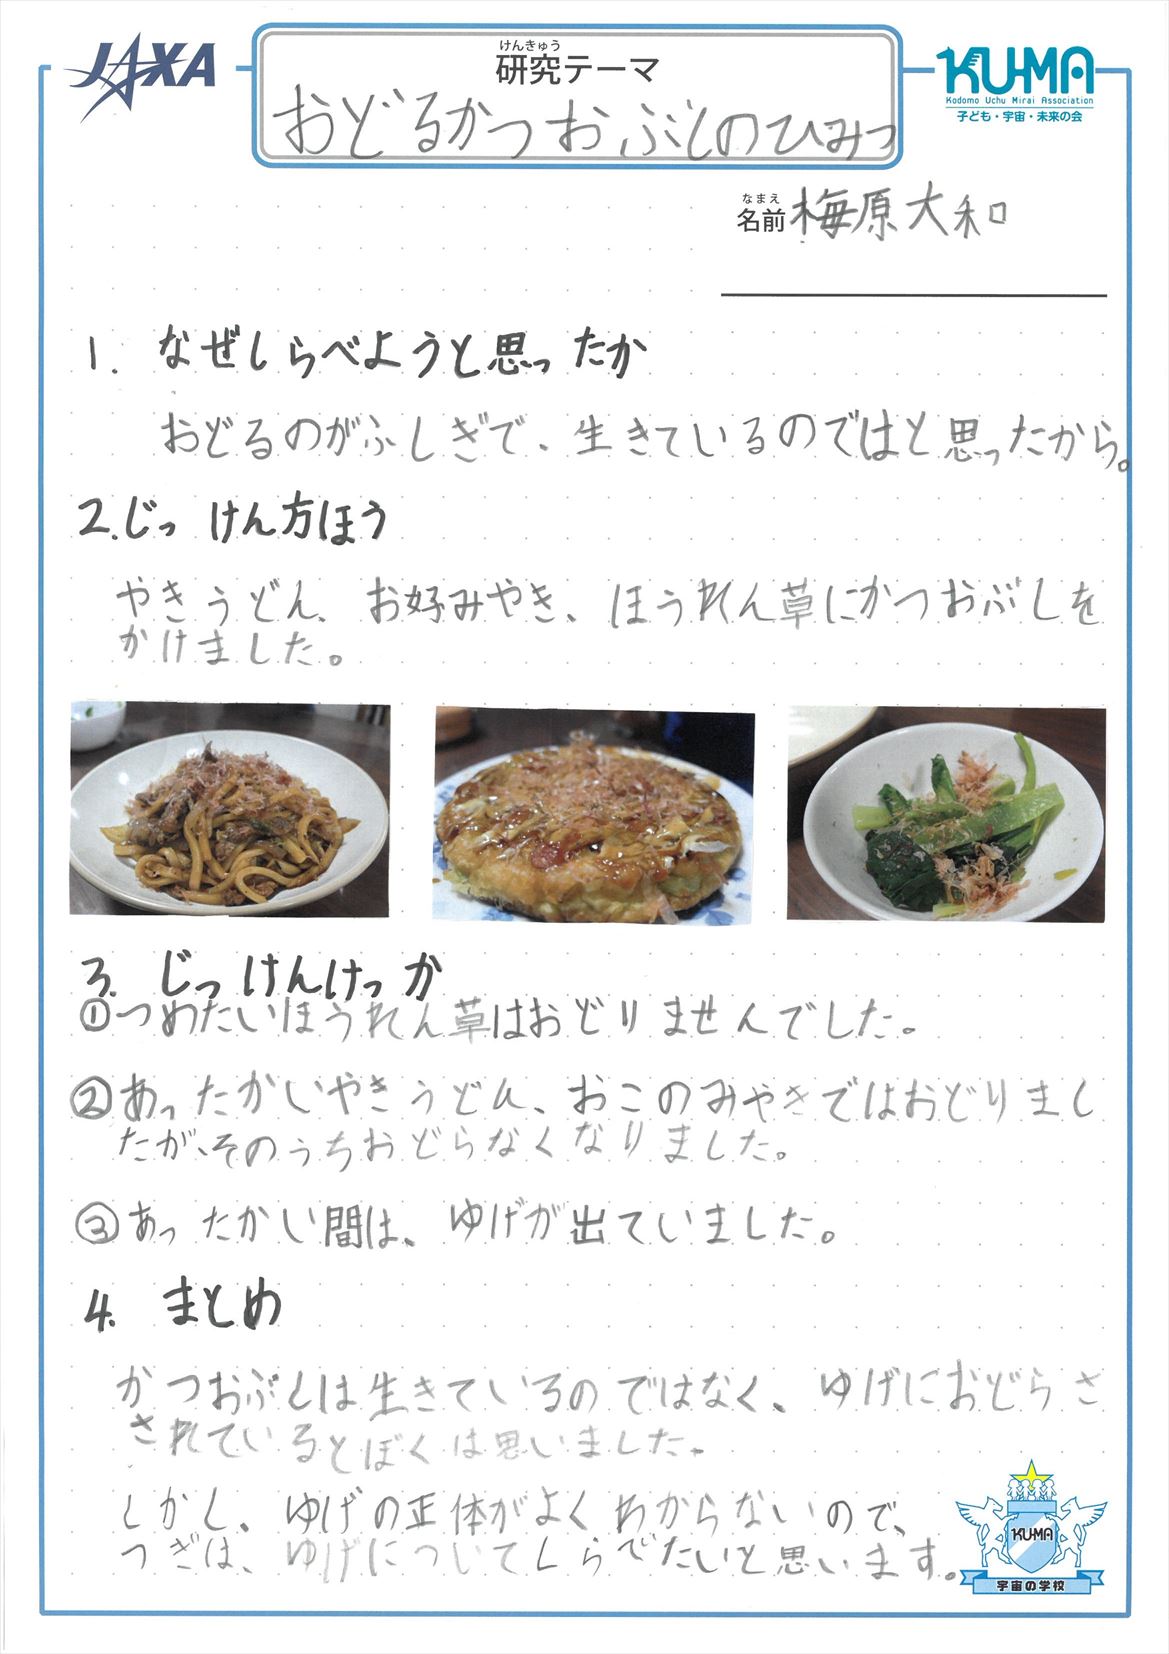 JAXA
けんきゅう
研究テーマ
KU-MA
Kodomo Uchu Mirai Association
子ども・宇宙・未来の会
おどるかつおぶしのひみつ
なまえ
名前 梅原大和
1. なぜしらべようと思ったか
おどるのがふしぎで、生きているのではと思ったから。
2.じっけん方ほう
やきうどん、お好みやき、ほうれん草にかつおぶしを
かけました。
3. じっけんけっか
①つめたいほうれん草はおどりませんでした。
②あったかいやきうどん、おこのみやきではおどりまし
たが、そのうちおどらなくなりました。
③あったかい間は、ゆげが出ていました。
4. まとめ
かつおぶしは生きているのではなく、ゆげにおどらさ
されているとぼくは思いました。
しかし、ゆげの正体がよくわからないので、
つぎは、ゆげについてしらべたいと思います。
KU-MA
宇宙の学校